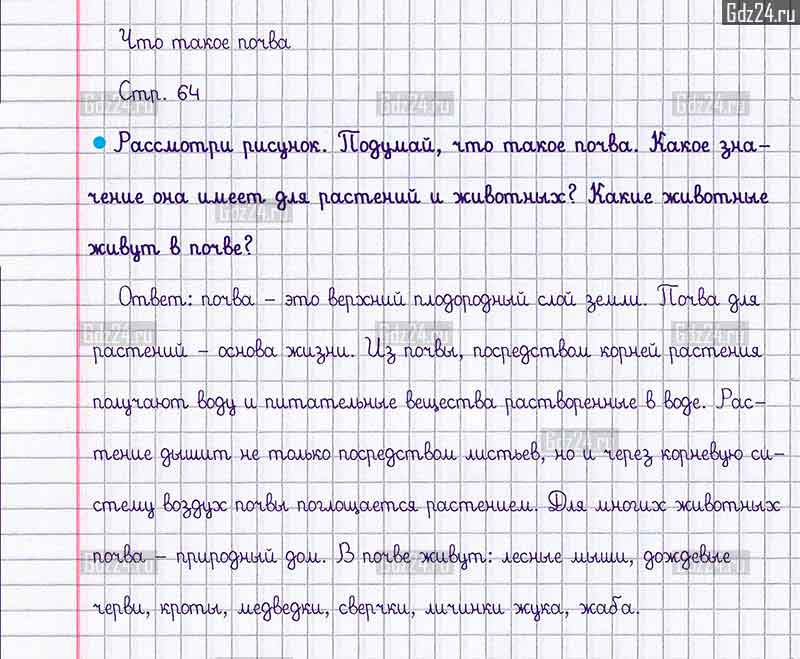 Gdz24.ru
Что такое почва
Стр. 64
Рассмотри рисунок. Подумай, что такое почва. Какое зна-
чение она имеет для растений и животных? Какие животные
живут в почве?
Ответ: почва – это верхний плодородный слой земли. Почва для
растений – основа жизни. Из почвы, посредством корней растения
получают воду и питательные вещества растворенные в воде. Рас-
тение дышит не только посредством листьев, но и через корневую си-
стему воздух почвы поглощается растением. Для многих животных
почва – природный дом. В почве живут: лесные мыши, дождевые
черви, кроты, медведки, сверчки, личинки жука, жаба.